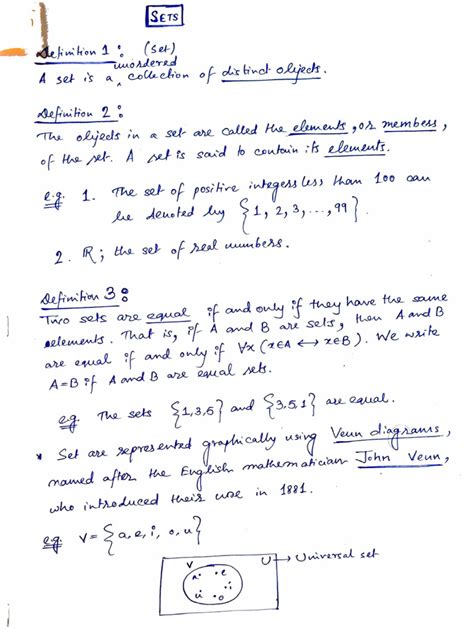 SETS
Definition 1 : (Set)
unordered
A set is a ^ collection of distinct objects.
Definition 2 :
The objects in a set are called the elements, or members,
of the set. A set is said to contain its elements.
e.g. 1. The set of positive integers less than 100 can
be denoted by {1, 2, 3, ..., 99}.
2. ℝ ; the set of real numbers.
Definition 3 :
Two sets are equal if and only if they have the same
elements. That is, if A and B are sets, then A and B
are equal if and only if ∀x (x∈A ⟷ x∈B). We write
A=B if A and B are equal sets.
e.g. The sets {1,3,5} and {3,5,1} are equal.
* Set are represented graphically using Venn diagrams,
named after the English mathematician John Venn,
who introduced their use in 1881.
e.g. V = {a, e, i, o, u}
V U → Universal set
a e
i
u o